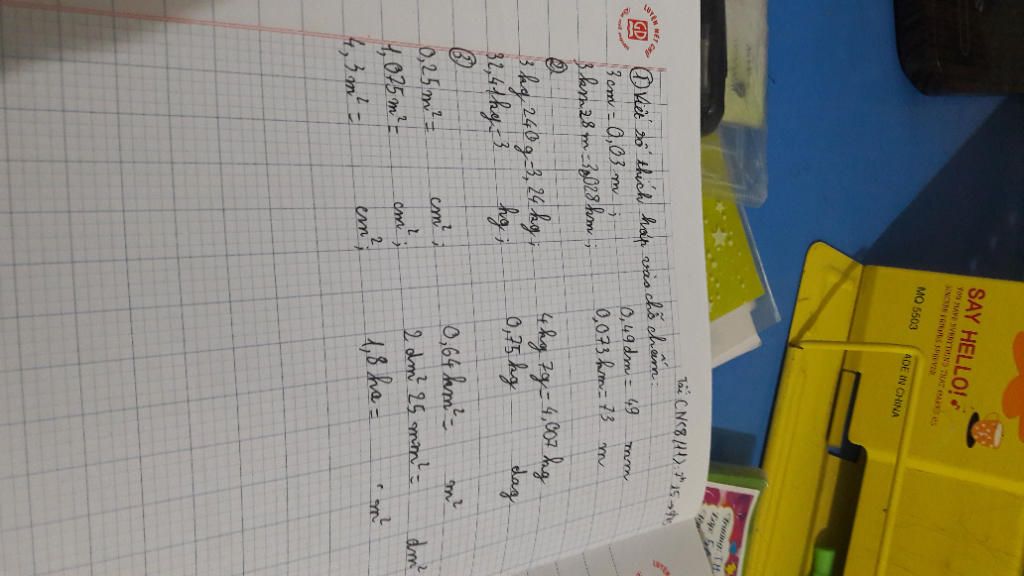 LUYỆN NÉT CHỮ
① Viết số thích hợp vào chỗ chấm.
3 cm = 0,03 m ; 0,49 dm = 49 mm
3 km 28 m = 3,028 km ; 0,073 km = 73 m
②
3 kg 240 g = 3,24 kg ; 4 kg 7g = 4,007 kg
33,41 kg = 3 hg ; 0,75 kg dag
③
0,25 m² = cm² ; 0,64 hm² = m²
1,025 m² = cm² ; 2 dm² 25 mm² = dm²
4,3 m² = cm² ; 1,8 ha = m²
SAY HELLO!
MQ 5503
MADE IN CHINA